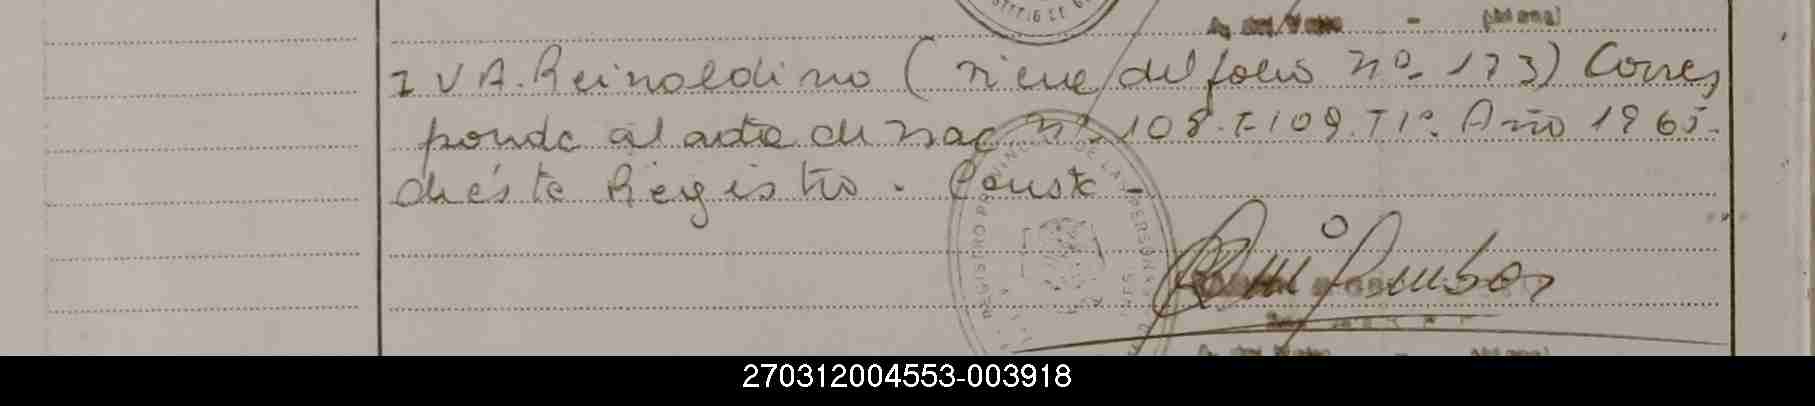 IVA. Reinoldino (viene del folio nº. 173) Corres
ponde al acta de nac nº. 108. F-109. T1º. Año 1965.
de éste Registro. Conste -
270312004553-003918